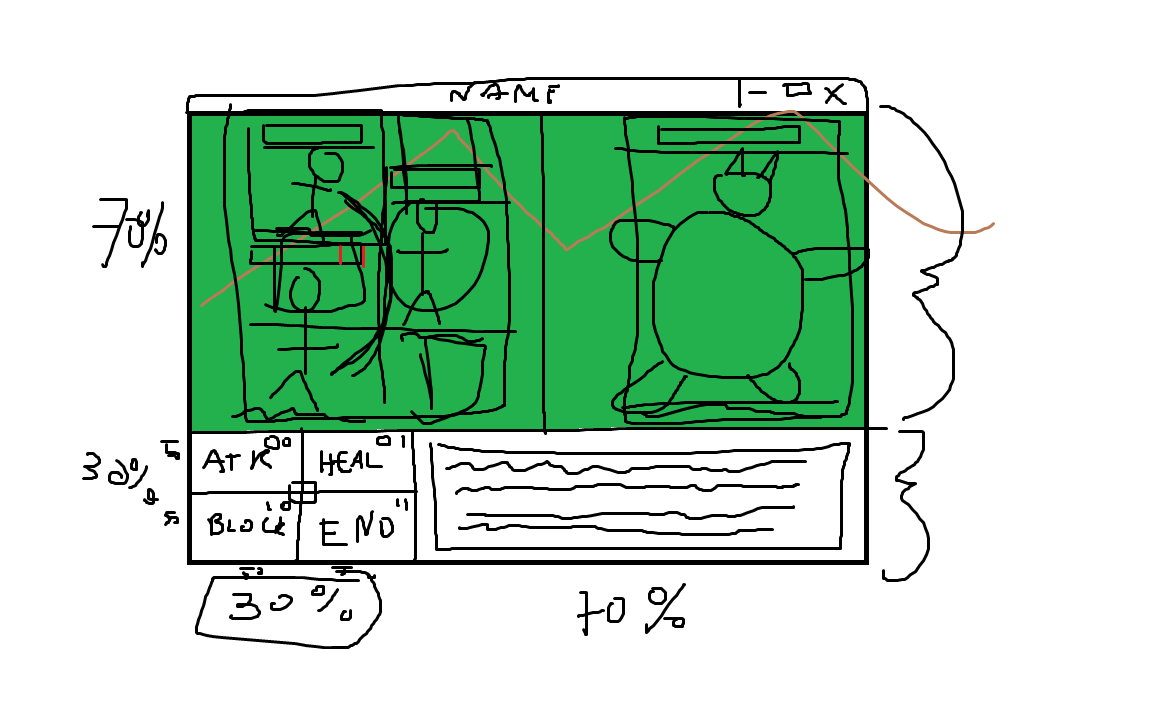 NAME - X
70%
ATK 00 HEAL 01
30%
BLOCK 10 END 11
30% 70%